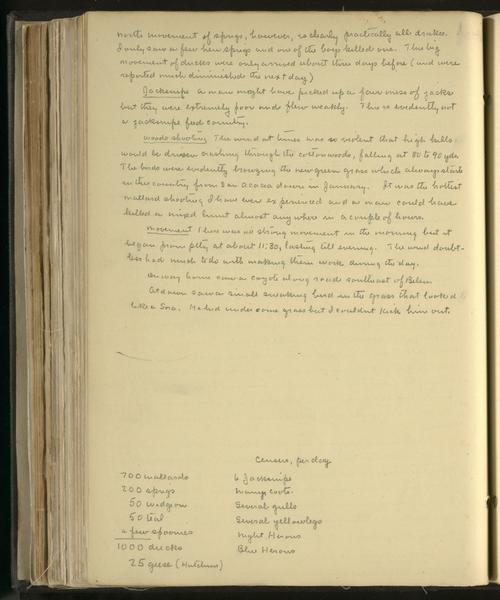 north movement of sprigs, however, is clearly practically all drakes.
I only saw a few hen sprigs and one of the boys killed one. This big
movement of ducks were only arrived about three days before (and were
reported much diminished the next day)
Jacksnipe A man might have picked up a fair mess of jacks
but they were extremely poor and flew weakly. This is evidently not
a jacksnipe feed country.
Woods shooting The wind at times was so violent that high balls
would be driven crashing through the cottonwoods, falling at 80 to 90 yds.
The birds were evidently browzing the new green grass which always starts
in this country from San Acacia down in January. It was the hottest
mallard shooting I have ever experienced and a man could have
killed a mixed limit almost anywhere in a couple of hours.
Movement There was no strong movement in the morning but it
began promptly at about 11:30, lasting till evening. The wind doubt-
less had much to do with making them work during the day.
On way home saw a coyote along road southeast of Belen.
At dawn saw a small sneaking bird in the grass that looked
like a Sora. He hid under some grass but I couldn't kick him out.
Census, per day
700 mallards
200 sprigs
50 widgeon
50 teal
a few spoonies
1000 ducks
25 geese (Hutchins)
6 Jacksnipe
many coots
Several gulls
Several yellowlegs
Night Herons
Blue Herons